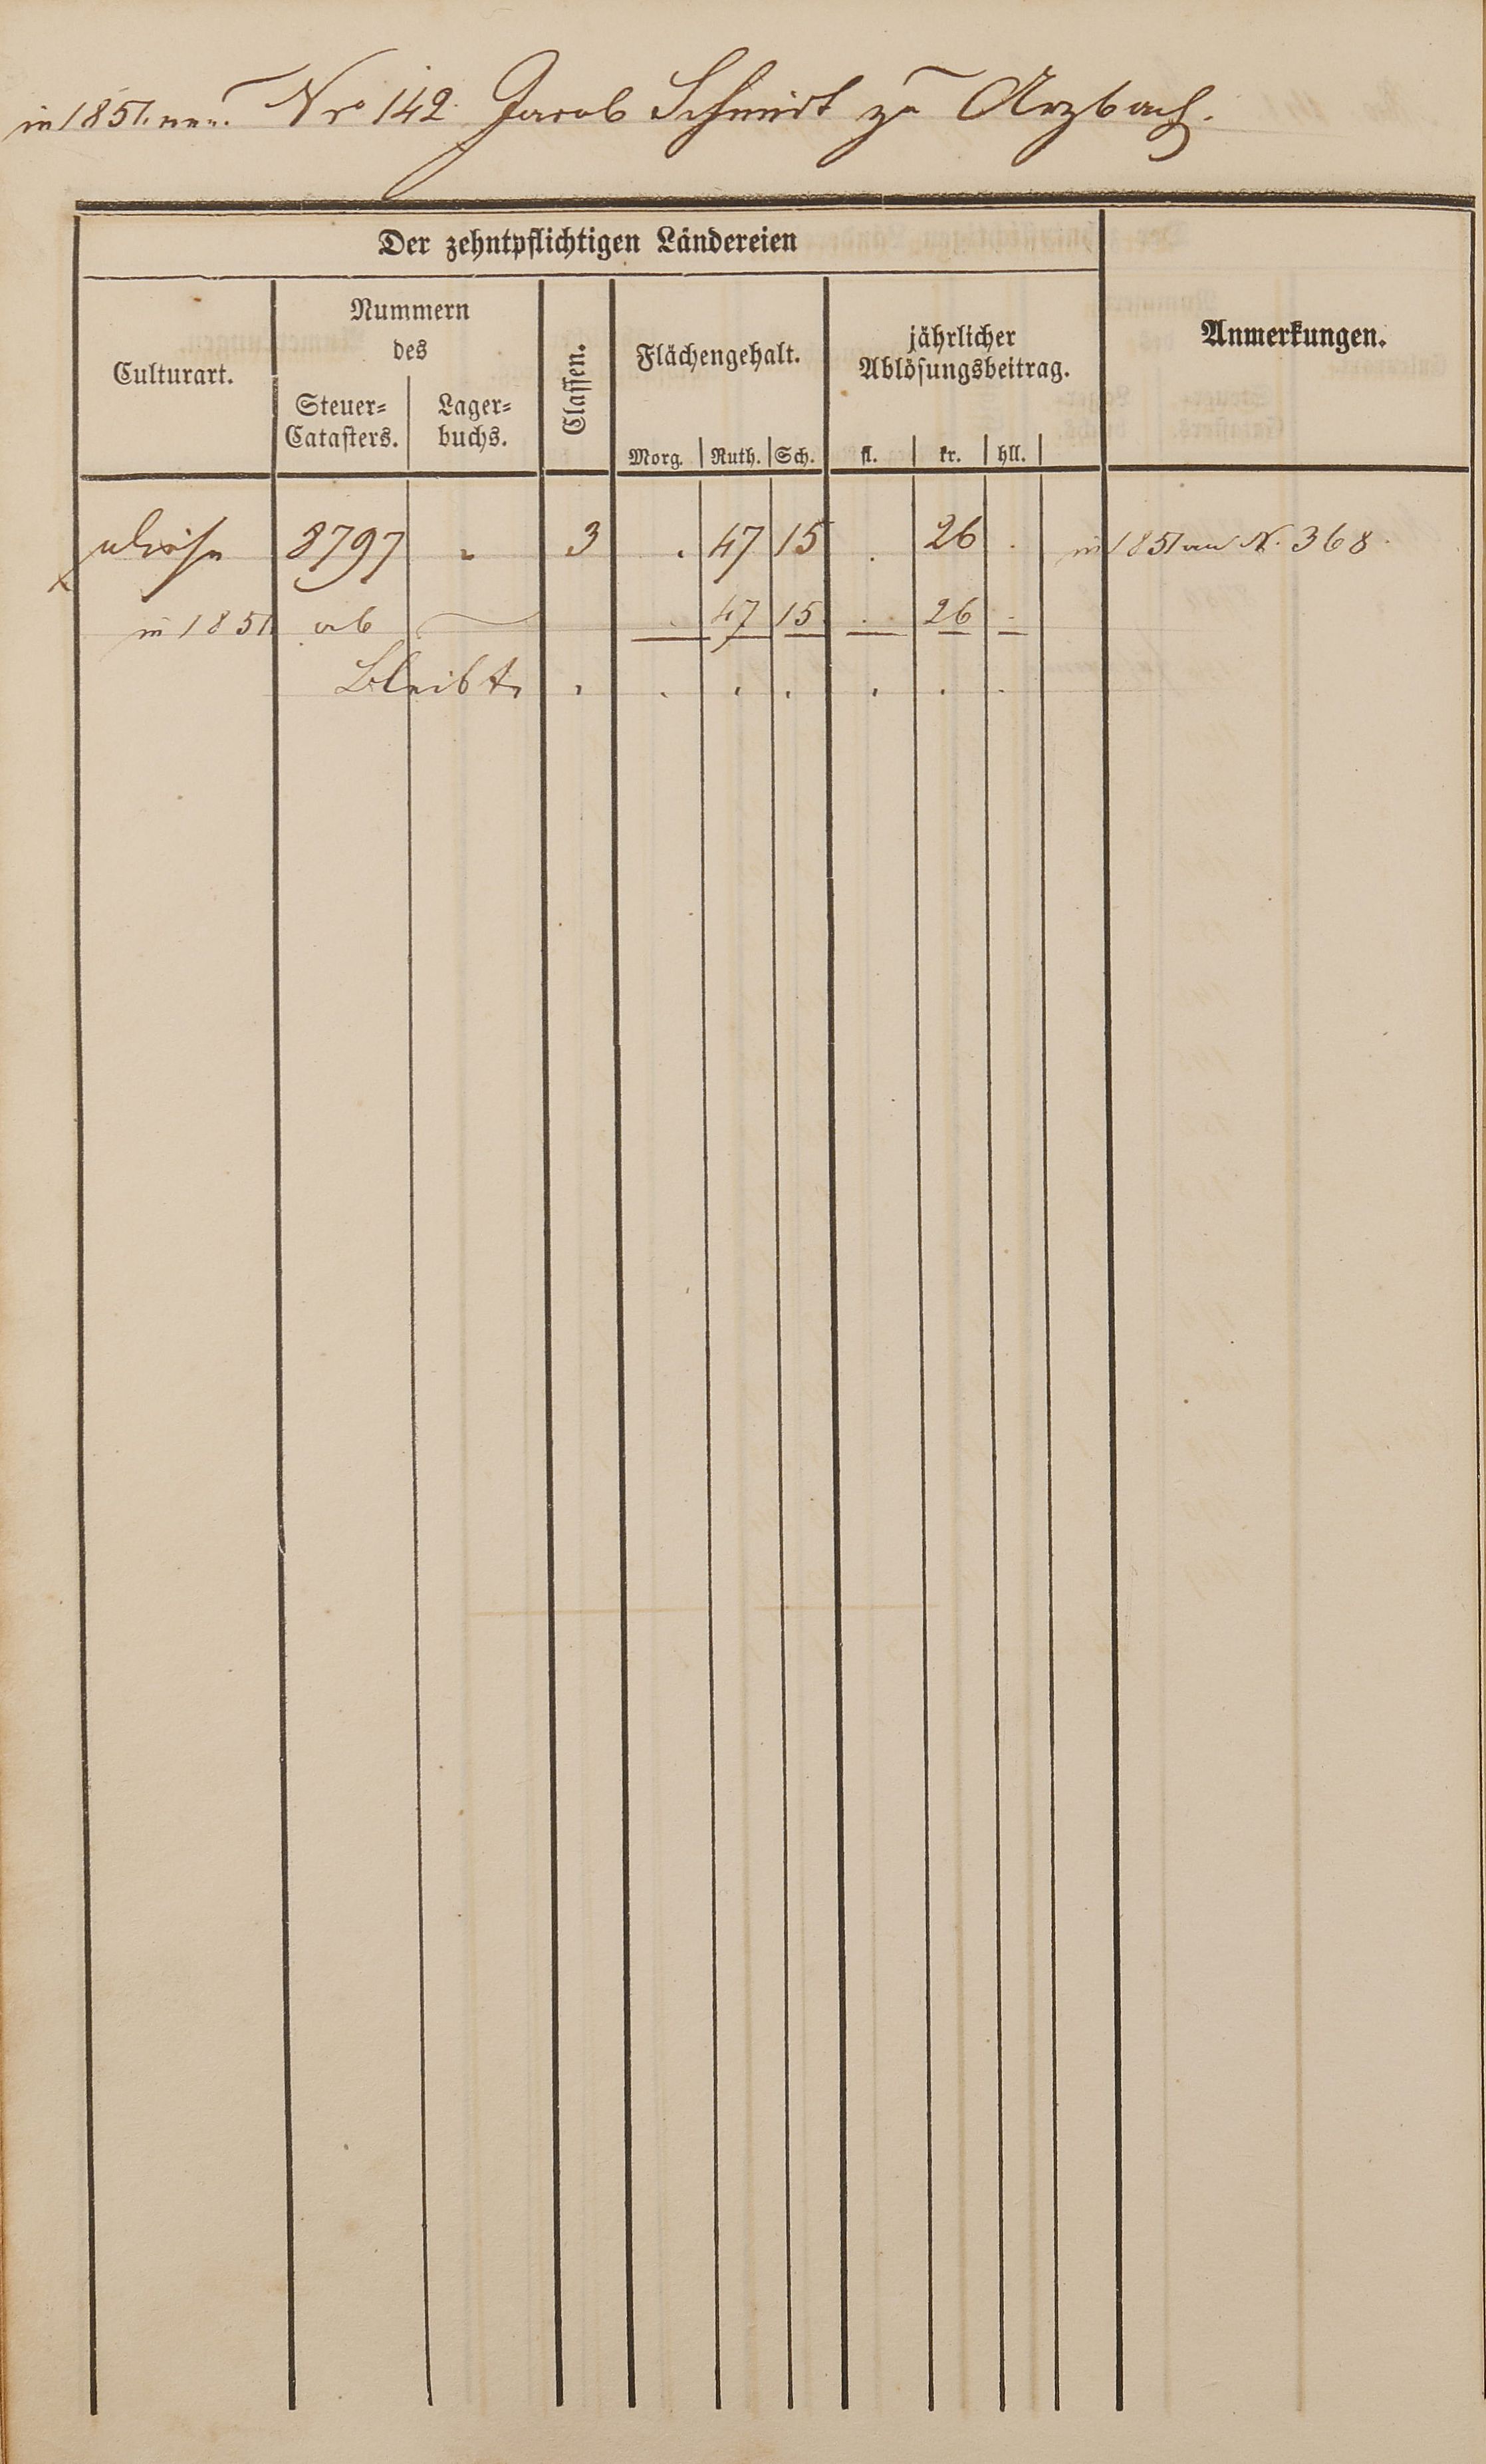 in 1851. Nro 142. Jacob Schmidt zu Arzbach.
Der zehntpflichtigen Ländereien
Culturart.
Nummern
des
Steuer=
Catasters.
Lager=
buchs.
Classen.
Flächengehalt.
Morg. Ruth. Sch.
jährlicher
Ablösungsbeitrag.
fl. kr. hll.
Anmerkungen.
Wiese 8797 " 3 . 47 15 . 26 . in 1851 an N. 368.
in 1851 ab . 47 15 . 26 .
Bleibt, . . . . . . .